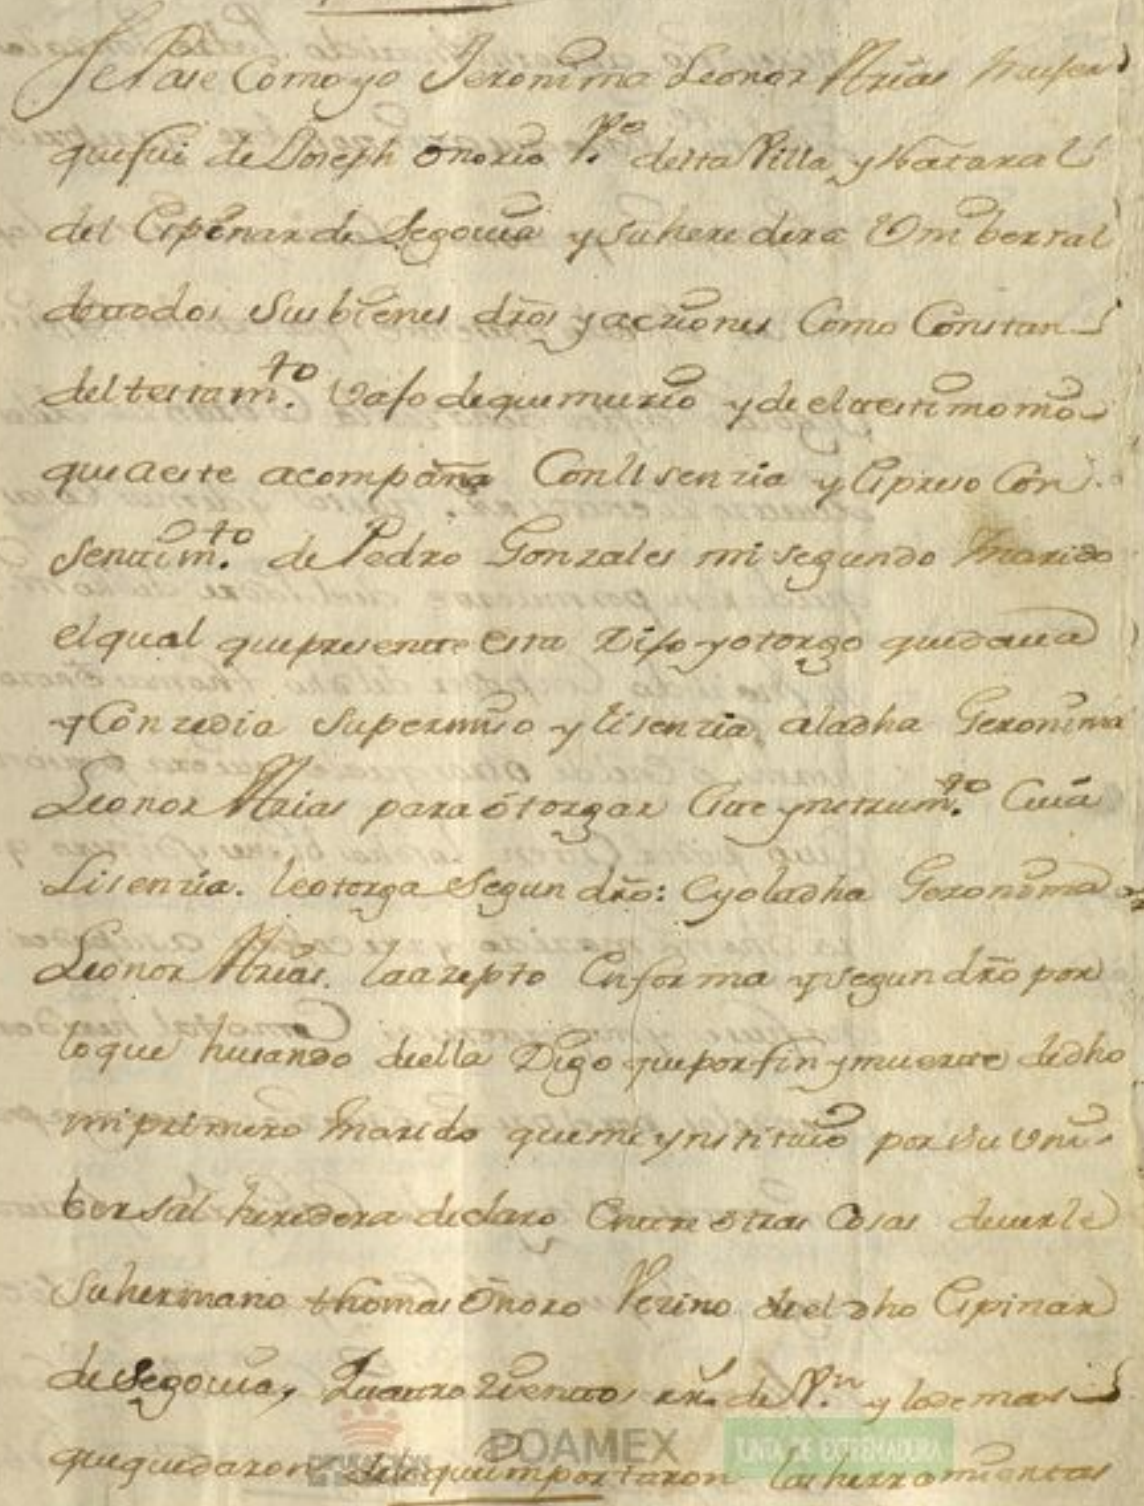 Sepase Como yo Jeronima Leonor Arias Muger
que fui de Joseph onorio V.no desta Villa y Natural
del Espinar de Segouia y su heredera Vniberzal
de todos sus bienes dros y acziones Como Constan
del testam.to Vajo de que murio y de el testimonio
que a este acompaña Con lisenzia y Espreso Con
sentim.to de Pedro Gonzales mi segundo Marido
el qual que presente esta Dijo y otorgo que daua
y Conzedia su permiso y lisenzia, a la dha Geronima
Leonor Arias para otorgar Este ynstrum.to Cuia
Lisenzia. le otorga segun dro: E yo la dha Geronima
Leonor Arias. la azepto En forma y segun dro por
lo que husando de ella Digo que por fin y muerte de dho
mi primero Marido que me ynstituio por su Vni
bersal heredera declaro Entre otras Cosas deuerle
su hermano thomas onoro Vezino de el dho Espinar
de Segouia, Quatro Zientos rr.s de V.n y lo demas
que quedaron de lo que ymportaron las herramientas
POAMEX
JUNTA DE EXTREMADURA